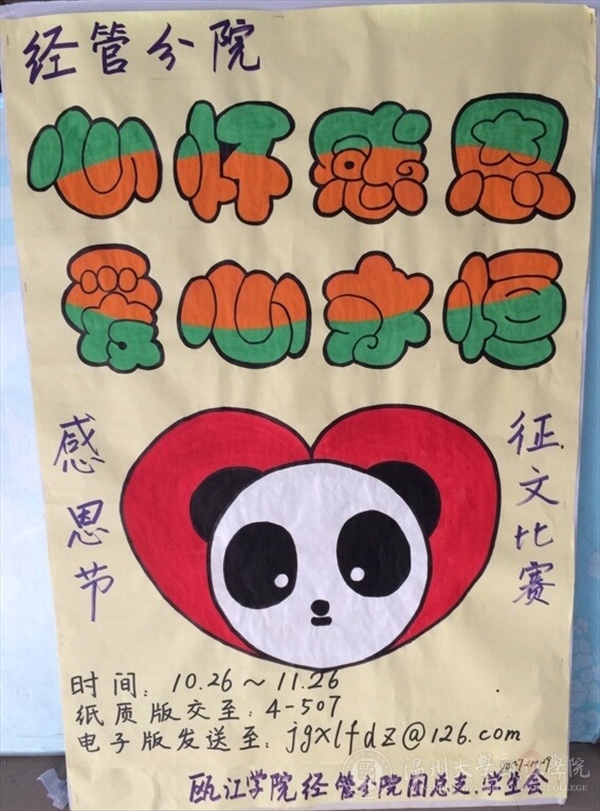 经管分院
心怀感恩
爱心永恒
感恩节
征文比赛
时间：10.26～11.26
纸质版交至：4-507
电子版发送至：jgxlfdz@126.com
温州大学瓯江学院
瓯江学院经管分院团总支学生会